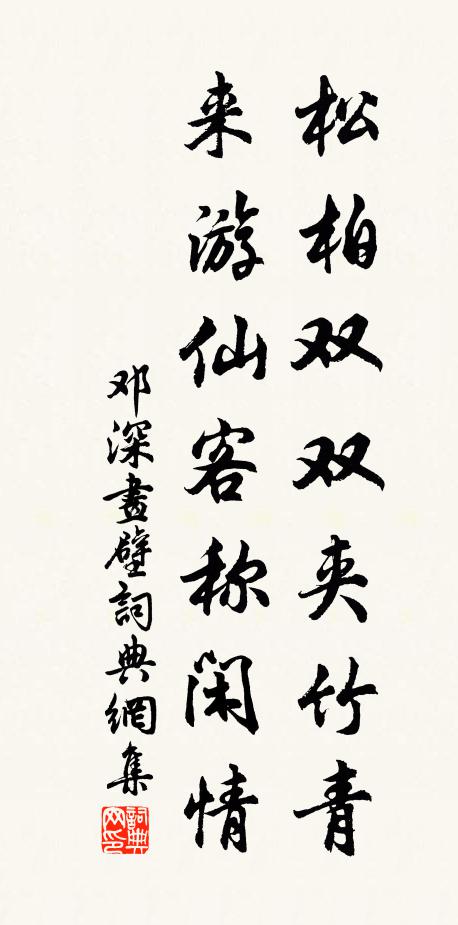 松柏双双夹竹青
来游仙客称闲情
邓深畫壁詞典網集
詞典网印